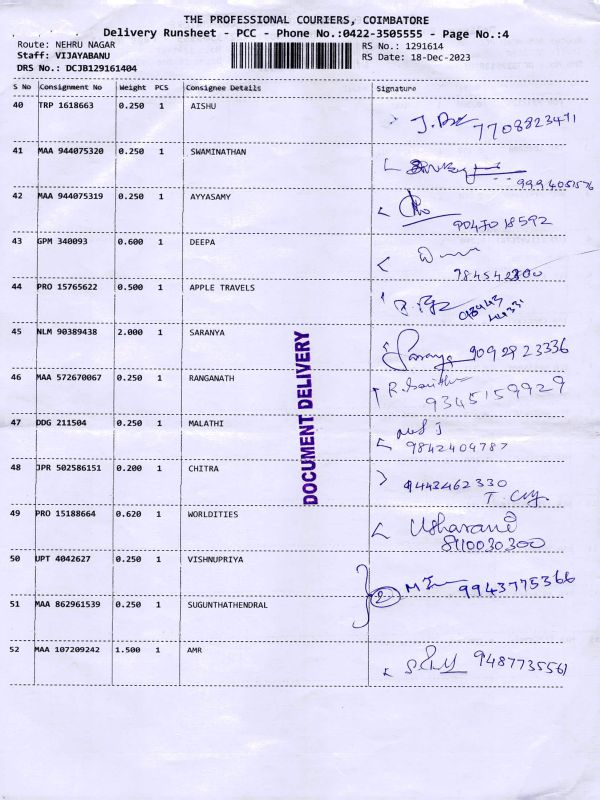 THE PROFESSIONAL COURIERS, COIMBATORE
Delivery Runsheet - PCC - Phone No.:0422-3505555 - Page No.:4
Route: NEHRU NAGAR
Staff: VIJAYABANU
DRS No.: DCJB129161404
RS No.: 1291614
RS Date: 18-Dec-2023
S No Consignment No Weight PCS Consignee Details Signature
40 TRP 1618663 0.250 1 AISHU
7708823471
41 MAA 944075320 0.250 1 SWAMINATHAN
9994051576
42 MAA 944075319 0.250 1 AYYASAMY
9047018592
43 GPM 340093 0.600 1 DEEPA
44 PRO 15765622 0.500 1 APPLE TRAVELS
45 NLM 90389438 2.000 1 SARANYA
Saranya 9092923336
46 MAA 572670067 0.250 1 RANGANATH
9345159929
47 DDG 211504 0.250 1 MALATHI
9842409787
48 JPR 502586151 0.200 1 CHITRA
9443462330
49 PRO 15188664 0.620 1 WORLDITIES
Usharani
8110030300
50 UPT 4042627 0.250 1 VISHNUPRIYA
2 9943775366
51 MAA 862961539 0.250 1 SUGUNTHATHENDRAL
52 MAA 107209242 1.500 1 AMR
9487735561
DOCUMENT DELIVERY